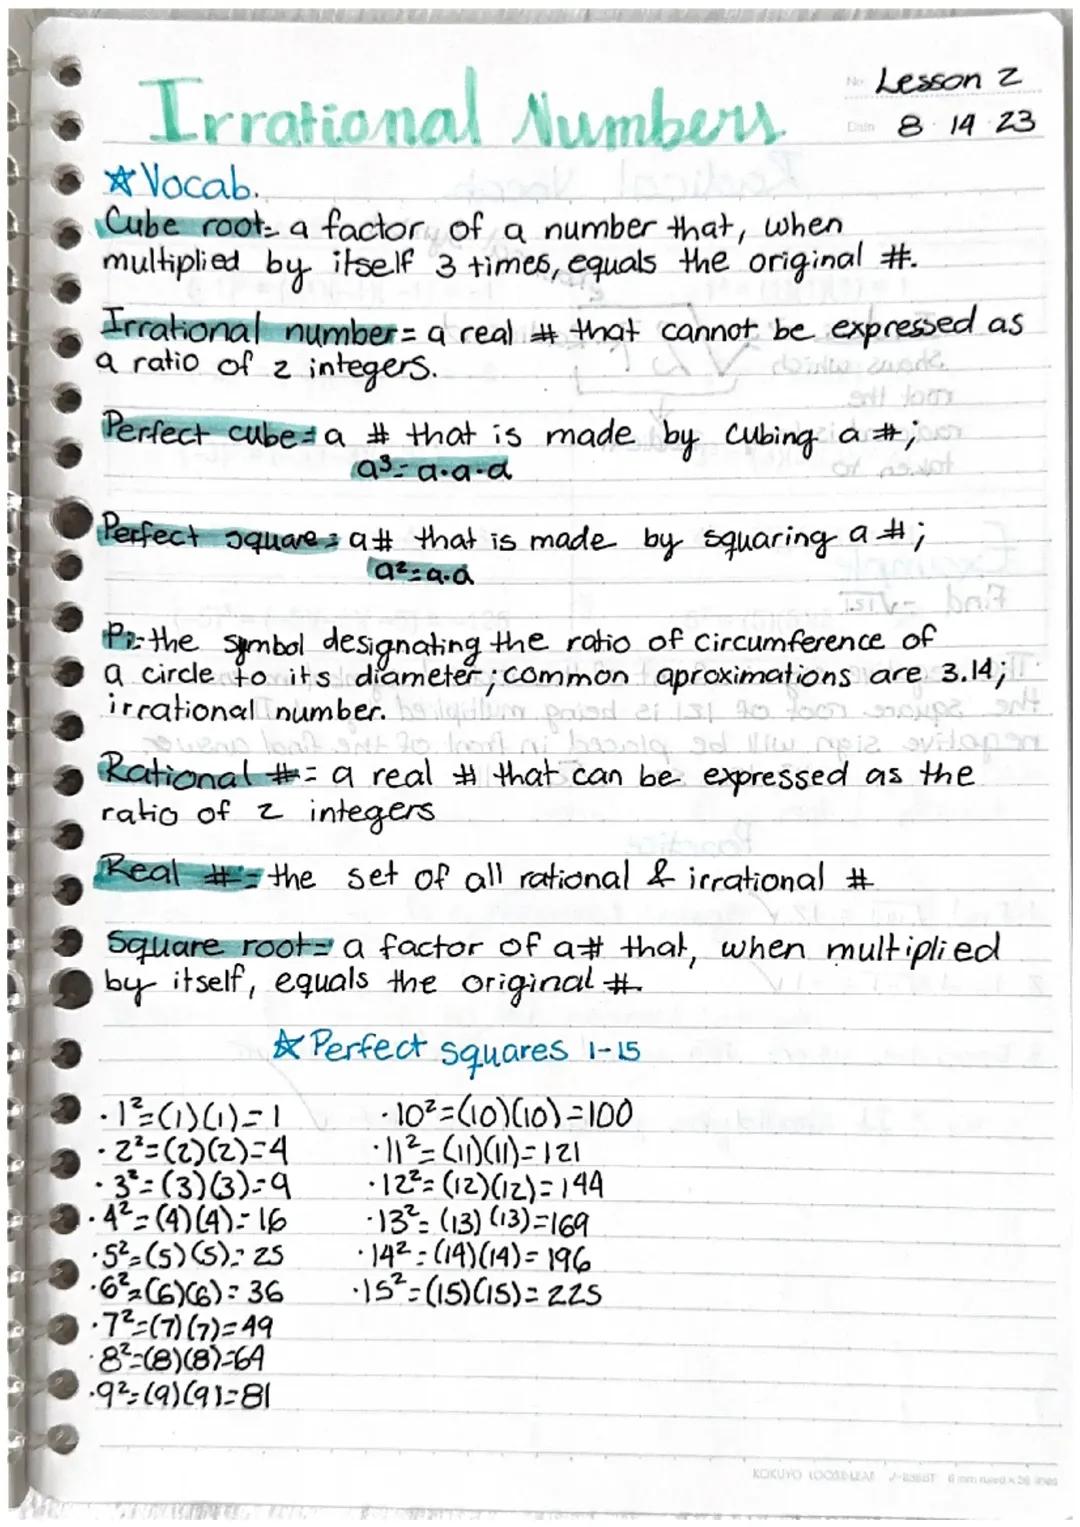 Irrational Numbers
No. Lesson 2
Date 8 14 23
☆ Vocab.
Cube root- a factor of a number that, when
multiplied by itself 3 times, equals the original #.
Irrational number= a real # that cannot be expressed as
a ratio of 2 integers.
Perfect cube= a # that is made by cubing a #;
a³=a·a·a
Perfect square= a # that is made by squaring a #;
a²=a·a
Pi-the symbol designating the ratio of circumference of
a circle to its diameter; common aproximations are 3.14;
irrational number.
Rational #= a real # that can be expressed as the
ratio of 2 integers
Real #= the set of all rational & irrational #
Square root= a factor of a # that, when multiplied
by itself, equals the original #.
☆ Perfect squares 1-15
·1²=(1)(1)=1
·2²=(2)(2)=4
·3²=(3)(3)=9
·4²=(4)(4)=16
·5²=(5)(5)=25
·6²=(6)(6)=36
·7²=(7)(7)=49
·8²=(8)(8)=64
·9²=(9)(9)=81
·10²=(10)(10)=100
·11²=(11)(11)=121
·12²=(12)(12)=144
·13²=(13)(13)=169
·14²=(14)(14)=196
·15²=(15)(15)=225
KOKUYO LOOSE-LEAF 6 mm ruled x 36 lines